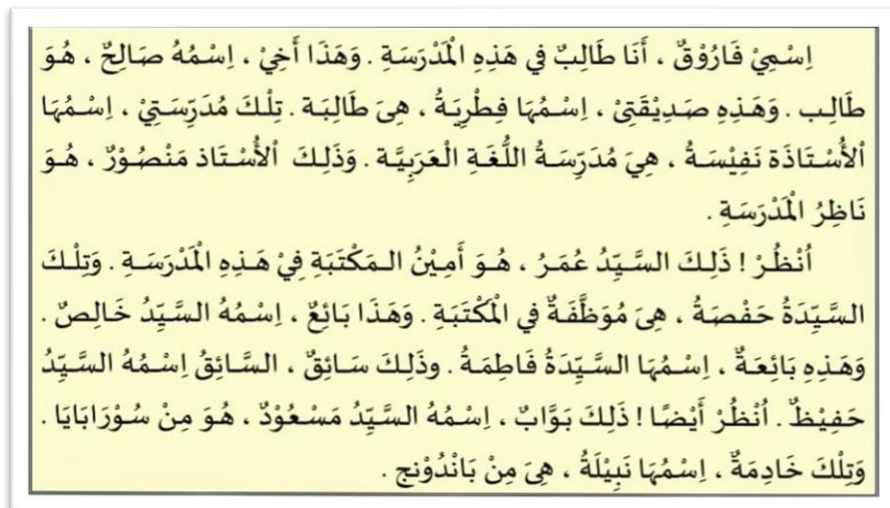 اِسْمِيْ فَارُوْقٌ ، أَنَا طَالِبٌ في هَذِهِ الْمَدْرَسَةِ . وَهَذَا أَخِيْ ، اِسْمُهُ صَالِحٌ ، هُوَ
طَالِب . وَهَذِهِ صَدِيْقَتِىْ ، اِسْمُهَا فِطْرِيَةُ ، هِىَ طَالِبَة . تِلْكَ مُدَرِّسَتِيْ ، اِسْمُهَا
ٱلأُسْتَاذَة نَفِيْسَةُ ، هِيَ مُدَرِّسَةُ اللُّغَةِ الْعَرَبِيَّة . وَذَلِكَ ٱلأُسْتَاذ مَنْصُوْرٌ ، هُوَ
نَاظِرُ الْمَدْرَسَةِ .
اُنْظُرْ ! ذَلِكَ السَّيِّدُ عُمَرُ ، هُوَ أَمِيْنُ المَكْتَبَةِ فِيْ هَذِهِ الْمَدْرَسَةِ . وَتِلْكَ
السَّيِّدَةُ حَفْصَةُ ، هِىَ مُوَظَّفَةٌ في الْمَكْتَبَةِ . وَهَذَا بَائِعٌ ، اِسْمُهُ السَّيِّدُ خَالِصٌ .
وَهَذِهِ بَائِعَةٌ ، اِسْمُهَا السَّيِّدَةُ فَاطِمَةُ . وذَلِكَ سَائِقٌ ، السَّائِقُ اِسْمُهُ السَّيِّدُ
حَفِيْظٌ . اُنْظُرْ أَيْضًا ! ذَلِكَ بَوَّابٌ ، اِسْمُهُ السَّيِّدُ مَسْعُوْدٌ ، هُوَ مِنْ سُوْرَابَايَا .
وَتِلْكَ خَادِمَةٌ ، اِسْمُهَا نَبِيْلَةُ ، هِىَ مِنْ بَانْدُوْنج .